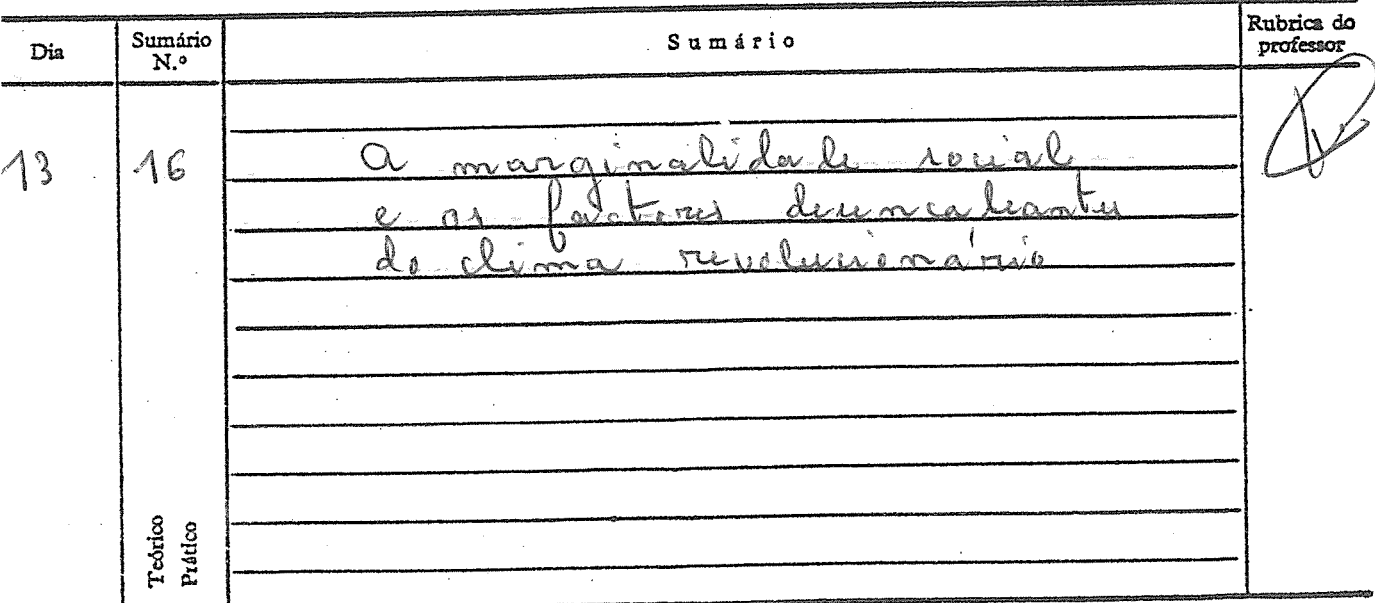 Dia Sumário N.º Sumário Rubrica do professor
13 16 A marginalidade social
e os factores desencadeantes
do clima revolucionário
Teórico
Prático